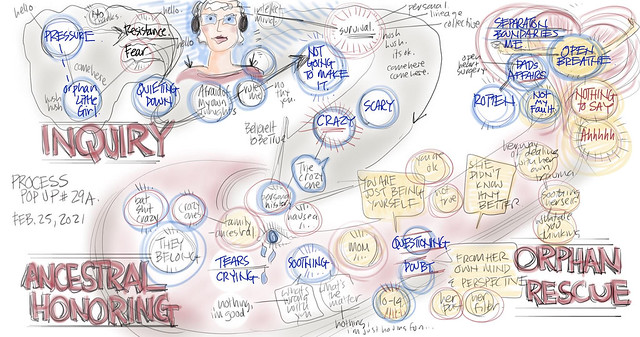 hello
No
thanks.
hello
PRESSURE
Resistance
Fear
hello
come here
hush
hush
orphan
Little
Girl.
hello
QUIETING
DOWN
INQUIRY
intellect
mind
Afraid of
My own
thoughts
NOT
GOING TO
MAKE
IT.
survival.
personal
lineage
collective
hush
hush.
it's ok.
come here
come here.
SCARY
CRAZY
Believed it
to be true
The
crazy
one
SEPARATION
BOUNDARIES
ME
open
heart
surgery
DADS
AFFAIRS
OPEN
BREATHE
ROTTEN
NOT
MY
FAULT
NOTHING
TO SAY
Ahhhhh
PROCESS
POP UP # 29A.
FEB. 25, 2021
bat
shit
crazy
crazy
ones
THEY
BELONG
family
ancestral
personal
history
TEARS
CRYING
SOOTHING
MOM
nothing,
i'm good.
what's
wrong
with
you
what's
the
matter
nothing,
YOU ARE
JUST BEING
YOURSELF
you are
ok
not
true
SHE
DIDN'T
KNOW
ANY
BETTER
her way of dealing
with her own
trauma
soothing
herself
what are
you
thinking
QUESTIONING
DOUBT
FROM HER
OWN MIND
& PERSPECTIVE
10-14
her
filter
ANCESTRAL
HONORING
ORPHAN
RESCUE